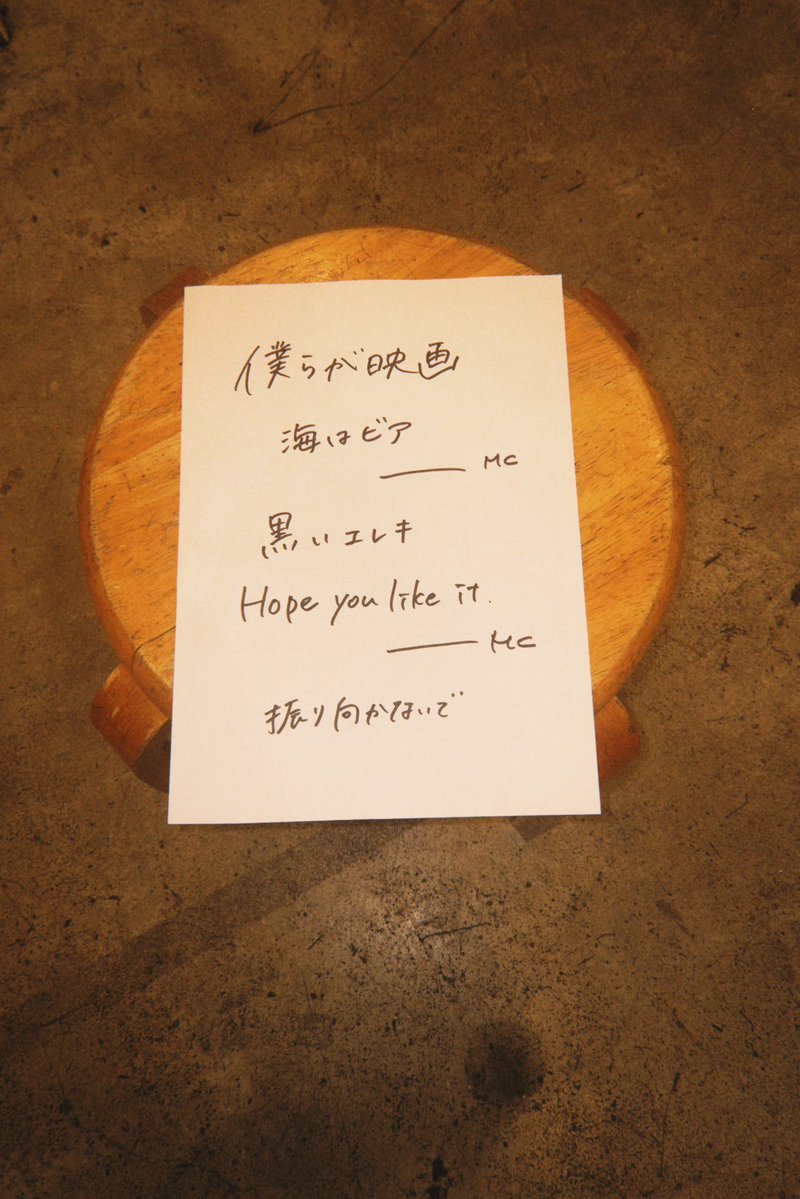 僕らが映画
海はビア
—— MC
黒いエレキ
Hope you like it.
—— MC
振り向かないで